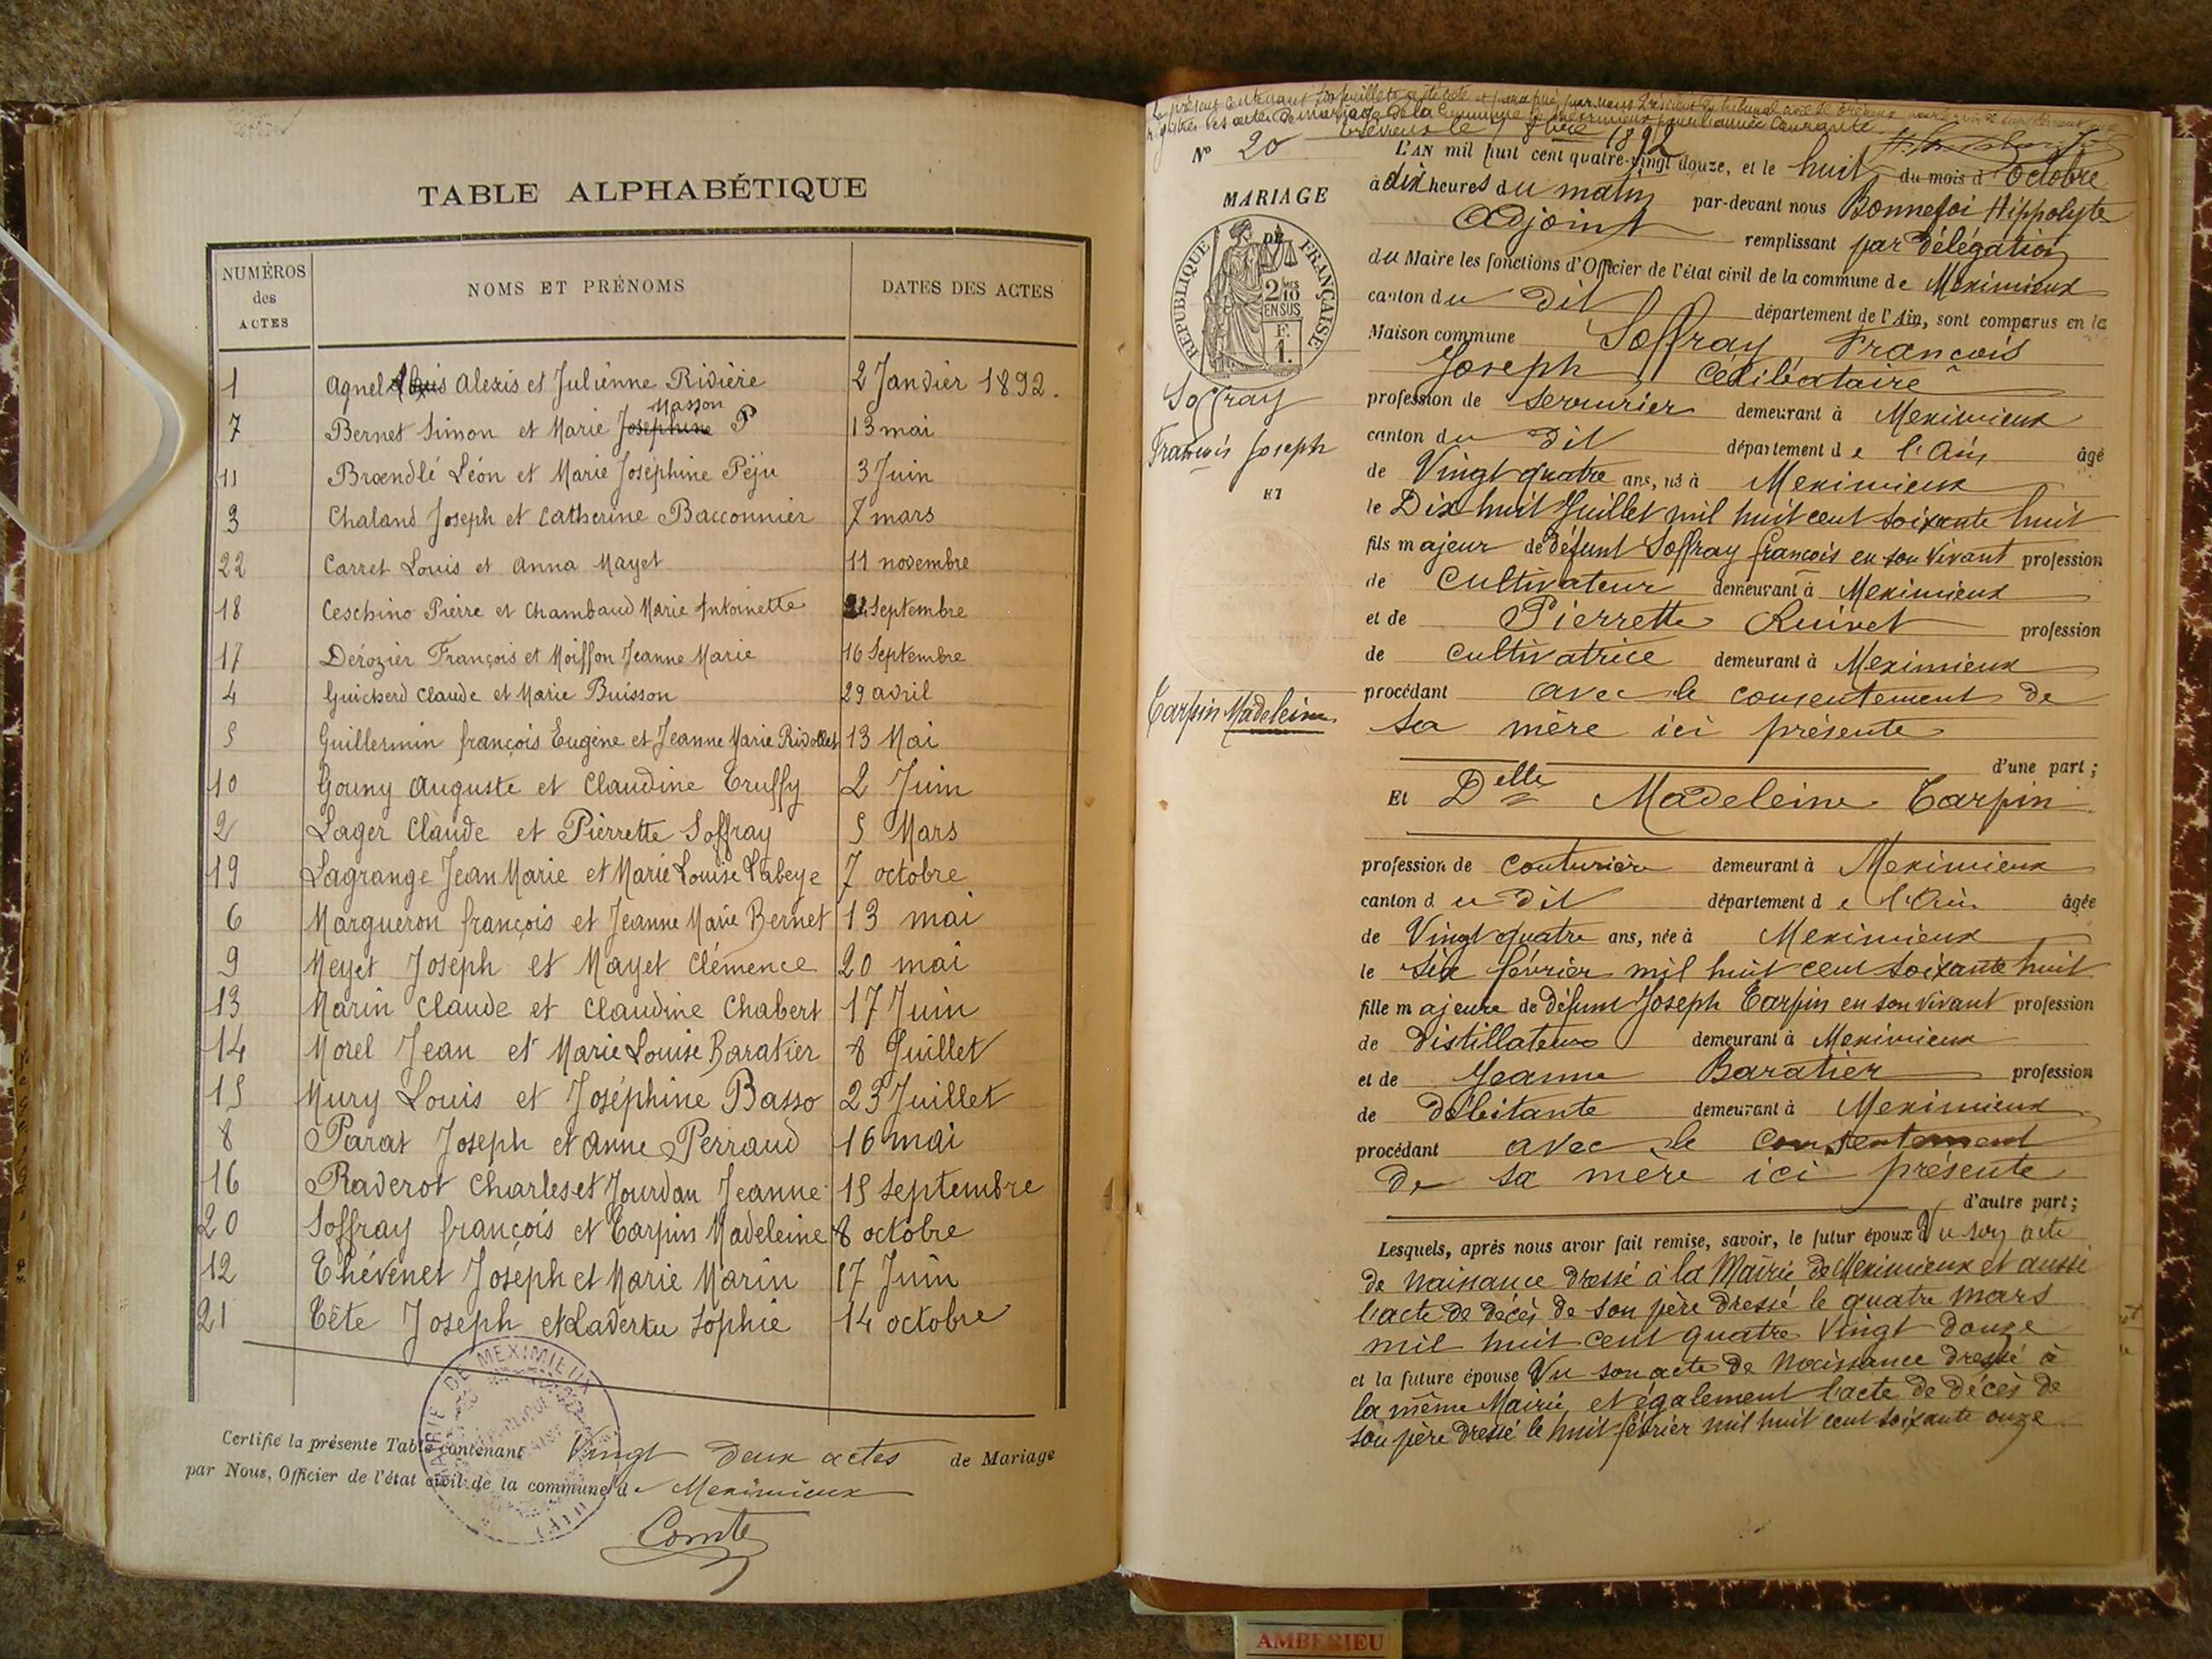 TABLE ALPHABÉTIQUE
NUMÉROS des ACTES
NOMS ET PRÉNOMS
DATES DES ACTES
1 Agnel Alexis et Julienne Rivière 2 Janvier 1892.
Masson
7 Bernet Simon et Marie Josephine P 13 mai
11 Brœndlé Léon et Marie Joséphine Péju 3 Juin
3 Chaland Joseph et Catherine Bacconnier 7 mars
22 Carret Louis et Anna Mayet 11 novembre
18 Ceschino Pierre et Chambaud Marie Antoinette Septembre
17 Dérozier François et Moiffon Jeanne Marie 16 Septembre
4 Guicherd Claude et Marie Buisson 29 avril
5 Guillermin françois Eugène et Jeanne Marie Rivollet 13 Mai
10 Gouny Auguste et Claudine Truffy 2 Juin
2 Lager Claude et Pierrette Soffray 5 Mars
19 Lagrange Jean Marie et Marie Louise Labeye 7 octobre
6 Margueron françois et Jeanne Marie Bernet 13 mai
9 Meyet Joseph et Mayet Clémence 20 mai
13 Marin Claude et Claudine Chabert 17 Juin
14 Morel Jean et Marie Louise Baratier 8 Juillet
15 Mury Louis et Joséphine Basso 23 Juillet
8 Parat Joseph et Anne Perraud 16 mai
16 Raverot Charles et Jourdan Jeanne 15 Septembre
20 Soffray françois et Tarpin Madeleine 8 octobre
12 Thévenet Joseph et Marie Marin 17 Juin
21 Tête Joseph et Lavertu Sophie 14 octobre
MAIRIE DE MEXIMIEUX (AIN)
Certifié la présente Table contenant Vingt deux actes de Mariage
par Nous, Officier de l'état civil de la commune de Meximieux
Comte
Le présent contenant feuillets a été coté et paraphé par nous Président du tribunal civil de Trévoux pour servir de supplément aux
registres des actes de mariage de la Commune de Meximieux pour l'année courante.
Trévoux le 7 8bre 1892
N° 20
MARIAGE
DE
RÉPUBLIQUE FRANÇAISE
2/10 EN SUS
F. 1.
Soffray
François Joseph
ET
Tarpin Madeleine
L'AN mil huit cent quatre-vingt douze, et le huit du mois d'Octobre
à dix heures du matin par-devant nous Bonnefoi Hippolyte
Adjoint remplissant par Délégation
du Maire les fonctions d'Officier de l'état civil de la commune de Meximieux
canton du dit département de l'Ain, sont comparus en la
Maison commune Soffray François
Joseph Célibataire
profession de Serrurier demeurant à Meximieux
canton du dit département de l'Ain âgé
de Vingt quatre ans, né à Meximieux
le Dix huit Juillet mil huit cent soixante huit
fils majeur de défunt Soffray françois en son vivant profession
de Cultivateur demeurant à Meximieux
et de Pierrette Ruivet profession
de Cultivatrice demeurant à Meximieux
procédant avec le consentement de
sa mère ici présente
d'une part ;
Et Delle Madeleine Tarpin
profession de Couturière demeurant à Meximieux
canton du dit département de l'Ain âgée
de Vingt quatre ans, née à Meximieux
le Six février mil huit cent soixante huit
fille majeure de défunt Joseph Tarpin en son vivant profession
de Distillateur demeurant à Meximieux
et de Jeanne Baratier profession
de débitante demeurant à Meximieux
procédant avec le consentement
de sa mère ici présente
d'autre part ;
Lesquels, après nous avoir fait remise, savoir, le futur époux Vu son acte
de Naissance dressé à la Mairie de Meximieux et aussi
l'acte de décès de son père dressé le quatre mars
mil huit cent quatre vingt douze
et la future épouse Vu son acte de Naissance dressé à
la même Mairie et également l'acte de décès de
son père dressé le huit février mil huit cent soixante onze
AMBERIEU